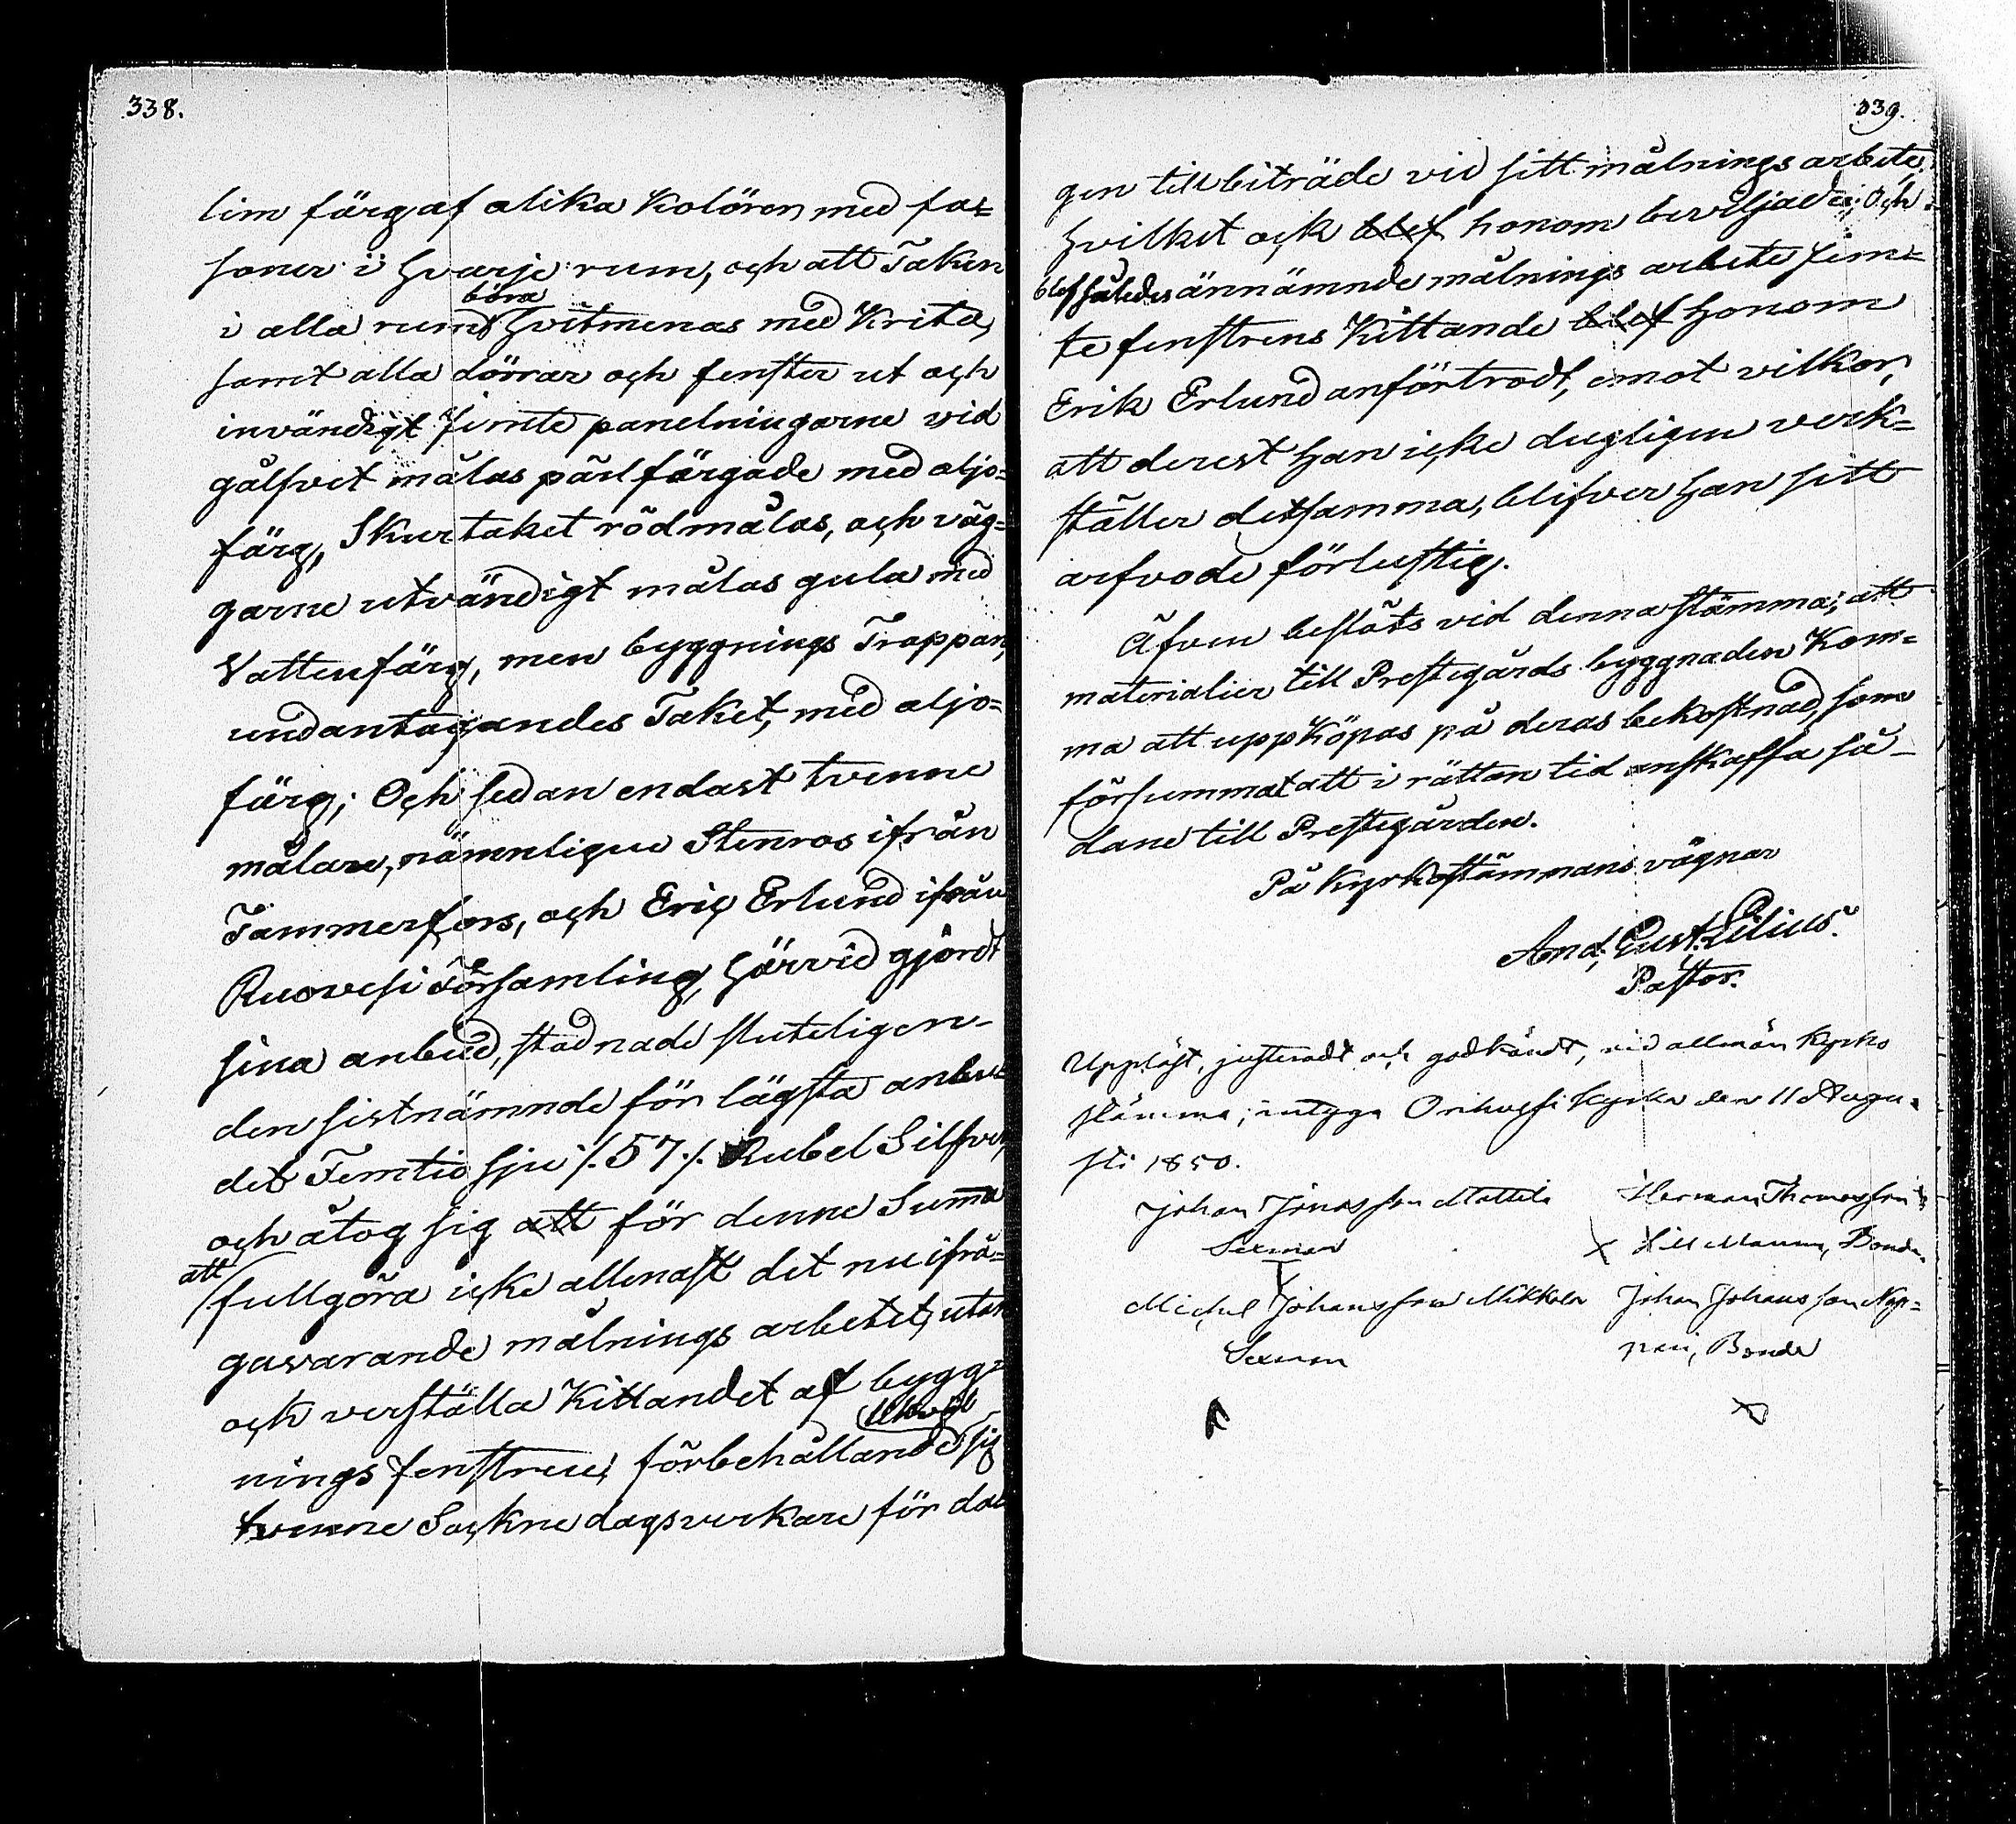 338.
lim färg af olika Kolören med fas=
soner i hvarje rum, och att Taken
böra
i alla rum hvitmenas med Krita,
samt alla dörrar och fenster ut och
invändigt jemte panelningarne vid
gålfvet målas pärlfärgade med oljo=
färg, Skurtaket rödmålas, och väg=
garne utvändigt målas gula med
Vattenfärg, men byggnings Trappan,
undantagandes Taket, med oljo=
färg; Och sedan endast tvenne
målare, nämnligen Stenros ifrån
Tammerfors, och Eric Erlund ifrån
Ruovesi Församling, härvid gjordt
sina anbud, stadnade sluteligen
den sistnämnde för lägsta anbu=
det Femtio sju /. 57 ./. Rubel Silfver,
och åtog sig att för denne Summa
att
fullgöra icke allenast det nu ifrå=
gavarande målnings arbetet, utan
och verställa Kittandet af bygg=
nings fenstren, förbehållande sig
tvenne Sockne dagsverkare för da=
339.
gen till biträde vid sitt målnings arbete,
hvilket ock blef honom beviljade; Och
blef således ännämnde målnings arbete jem=
te fenstrens Kittande blef honom
Erik Erlund anförtrodt, emot vilkor,
att derest han icke dugligen verk=
ställer detsamma, blifver han sitt
arfvode förlustig.
Äfven beslöts vid denna stämma, att
materialier till Prestegårds byggnaden Kom=
ma att uppköpas på deras bekostnad, som
försummat att i rättan tid anskaffa så=
dane till Prestegården.
På Kyrkostämmans vägnar
And. Gust. Lilius.
Pastor.
Uppläst, justeradt och godkändt, vid allmän kyrko
stämma; intyga Orihvesi Kyrka den 11 Augu=
sti 1850.
Johan Jonasson Mattila
Sexman
Herman Thomasson
X Hillmann, Bonde
Michel Johansson Mikkola
Sexman
Johan Johansson Nap=
pari, Bonde